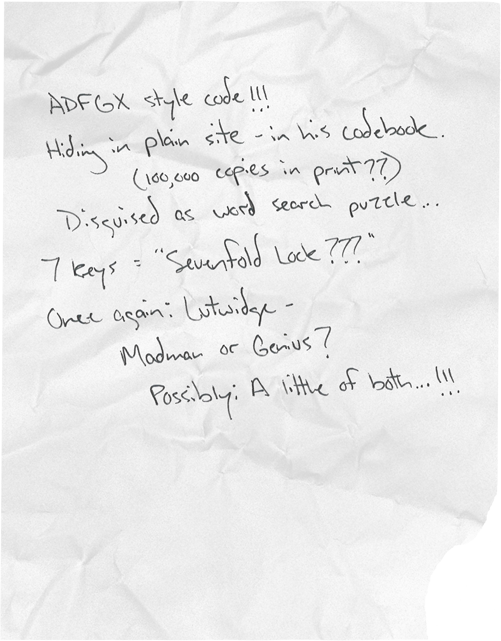 ADFGX style code!!!
Hiding in plain site - in his codebook.
(100,000 copies in print??)
Disguised as word search puzzle...
7 keys = "Sevenfold Lock???"
Once again: Lutwidge -
Madman or Genius?
Possibly: A little of both...!!!